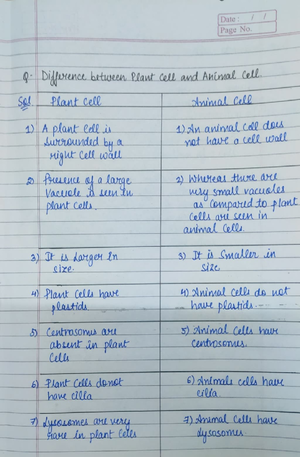 Date : / /
Page No.
Q. Difference between Plant Cell and Animal Cell
Sol Plant Cell
Animal Cell
1) A plant cell is
surrounded by a
right Cell wall
1) An animal cell does
not have a cell wall
2) Presence of a large
Vacuole is seen in
plant Cells.
2) Whereas there are
very small vacuoles
as compared to plant
Cells are seen in
animal Cells
3) It is larger In
size
3) It is Smaller in
Size
4) Plant Cells have
plastids
4) Animal Cells do not
have plastids
5) Centrosomes are
absent in plant
Cells
5) Animal Cells have
Centrosomes.
6) Plant Cells do not
have cilia
6) Animals cells have
cilia
7) Lysosomes are very
rare in plant Cells
7) Animal Cells have
lysosomes